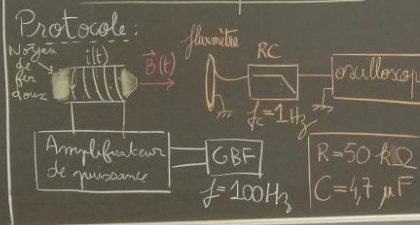 Protocole:
Noyau
de
fer
doux
i(t)
B⃗(t)
fluxmètre
RC
oscilloscop
fc=1Hz
Amplificateur
de puissance
GBF
f=100Hz
R=50 kΩ
C=4,7 μF